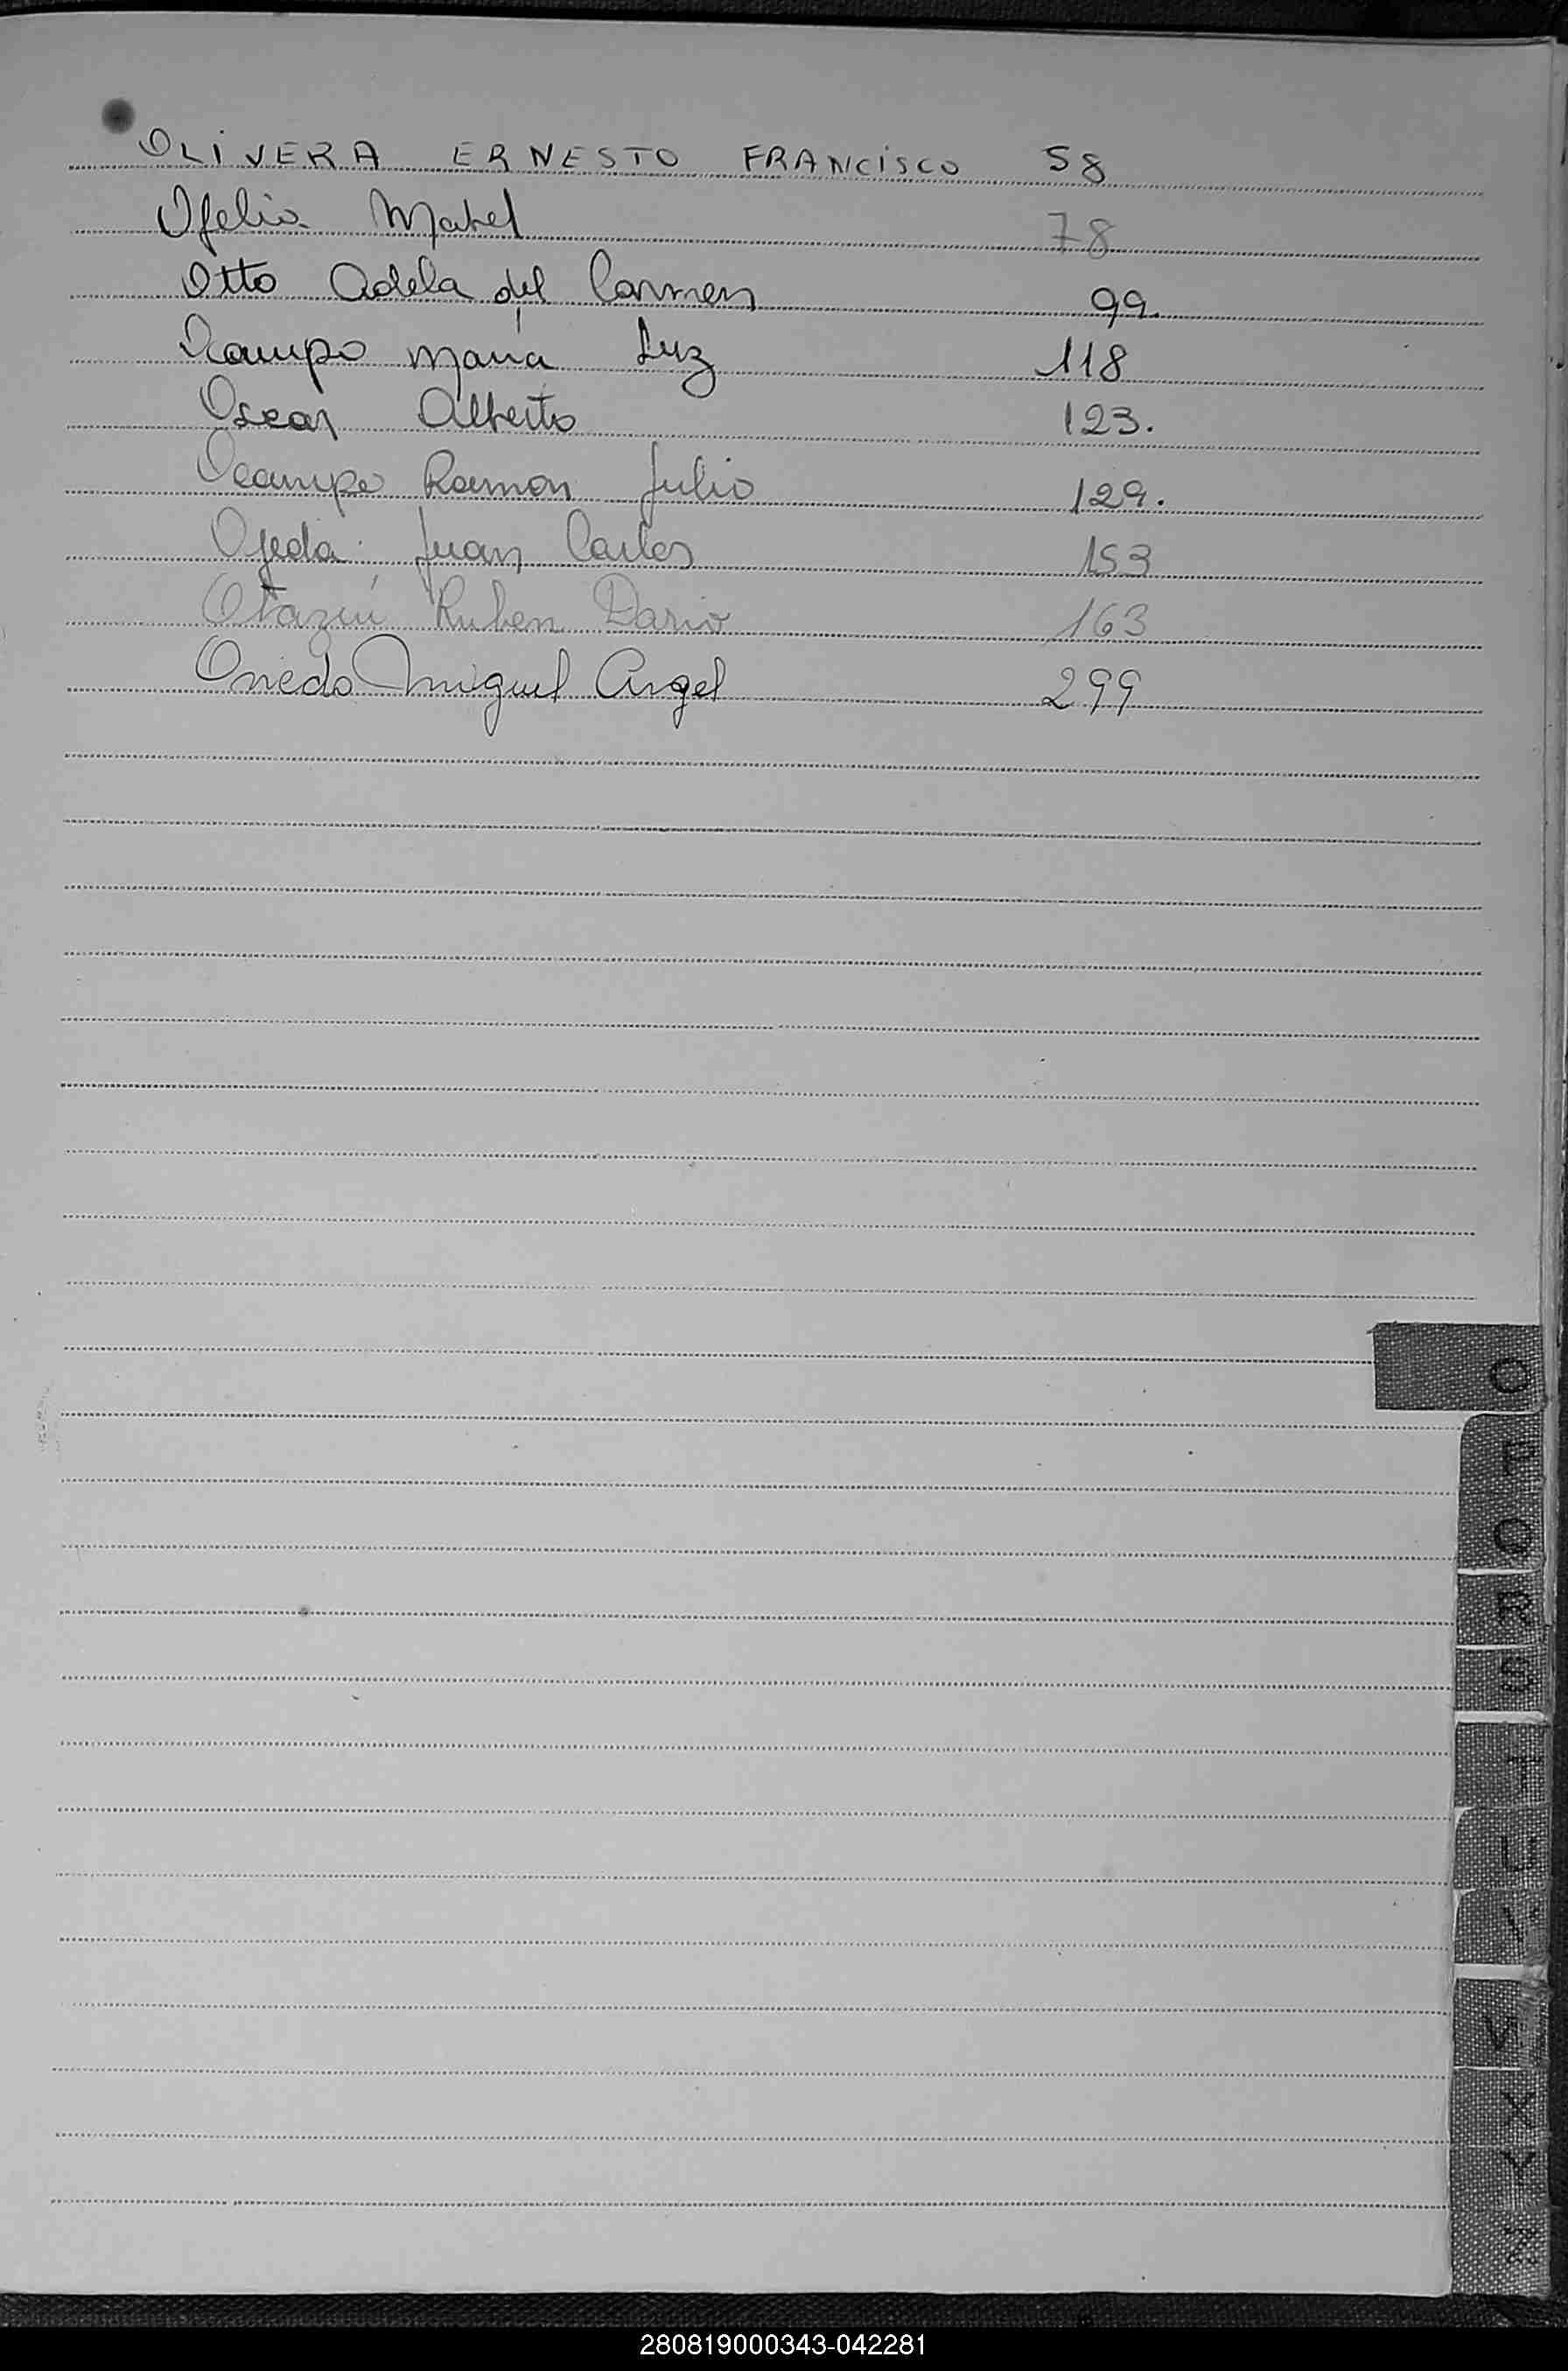 OLIVERA ERNESTO FRANCISCO 58
Ofelia Mabel 78
Otto Adela del Carmen 99.
Ocampo María Luz 118
Oscar Alberto 123.
Ocampo Ramon Julio 129.
Ojeda Juan Carlos 153
Otazú Ruben Dario 163
Oviedo Miguel Angel 299
O
R
S
T
U
V
X
Y
Z
280819000343-042281